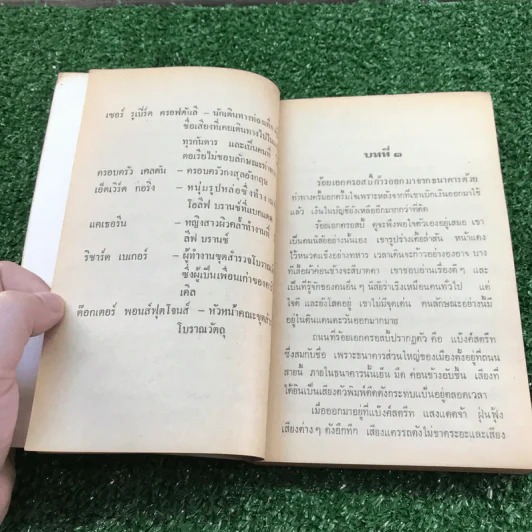 เซอร์ รูเบิร์ต ครอฟตันลี – นักเดินทางท่องเที่ยว
ชื่อเสียงที่เคยเดินทางไปใน
ทุรกันดาร และเป็นคนที่
คอเรียไม่ชอบลักษณะ
ครอบครัว เคลตัน – ครอบครัวกงสุลอังกฤษ
เอ็ดเวิร์ด กอริ่ง – หนุ่มรูปหล่อซึ่งทำงาน
โอลิฟ บรานซ์ที่แบกแดด
แคเธอรีน – หญิงสาวผิวคล้ำทำงานที่
ลีฟ บรานช์
ริชาร์ด เบเกอร์ – ผู้ทำงานขุดสำรวจโบราณ
ซึ่งผู้เป็นเพื่อนเก่าของคาร์
เคิล
ด๊อกเตอร์ พอนส์ฟุตโจนส์ – หัวหน้าคณะขุดสำ
โบราณวัตถุ
บทที่ ๑
ร้อยเอกครอสบี้ก้าวออกมาจากธนาคารด้วย
ท่าทางครึ้มอกครึ้มใจเพราะหลังจากที่เขาเบิกเงินออกมาใช้
แล้ว เงินในบัญชียังเหลืออีกมากกว่าที่คิด
ร้อยเอกครอสบี้ ดูจะพึงพอใจตัวเองอยู่เสมอ เขา
เป็นคนนิสัยอย่างนั้นเอง เขารูปร่างเตี้ยล่ำสัน หน้าแดง
ไว้หนวดแข็งอย่างทหาร เวลาเดินจะก้าวอย่างองอาจ บาง
ทีเสื้อผ้าค่อนข้างจะสีบาดตา เขาชอบอ่านเรื่องดี ๆ และ
เป็นที่รู้จักของคนอื่น ๆ นิสัยร่าเริงเหมือนคนทั่วไป แต่
ใจดี และยังโสดอยู่ เขาไม่มีจุดเด่น คนลักษณะอย่างนี้มี
อยู่ในดินแดนตะวันออกมากมาย
ถนนที่ร้อยเอกครอสบี้ปรากฏตัว คือ แบ๊งค์สตรีท
ซึ่งสมกับชื่อ เพราะธนาคารส่วนใหญ่ของเมืองตั้งอยู่ที่ถนน
สายนี้ ภายในธนาคารนั้นเย็น มืด ค่อนข้างอับชื้น เสียงที่
ได้ยินเป็นเสียงตัวพิมพ์ดีดดังกระทบแป้นอยู่ตลอดเวลา
เมื่อออกมาอยู่ที่แบ๊งค์สตรีท แสงแดดจ้า ฝุ่นฟุ้ง
เสียงต่าง ๆ ดังอึกทึก เสียงแตรรถดังไม่ขาดระยะและเสียง